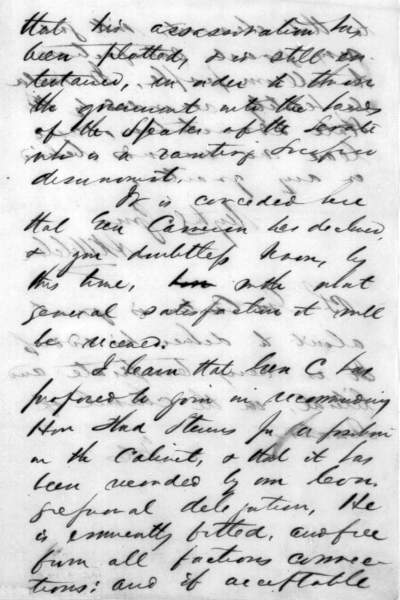 that his assassination has
been plotted, & is still en-
tertained, in order to throw
the government into the hands
of the Speaker of the Senate
who is a ranting
disunionist.
It is conceded here
that Gen Cameron has declined,
& you doubtless know, by
this time, with what
general satisfaction it will
be received.
I learn that Gen C. has
proposed to join in recommending
Hon Thad Stevens for a position
in the Cabinet, & that it has
been seconded by our Con-
gressional delegation. He
is eminently fitted, and free
from all factious connec-
tions: and if acceptable